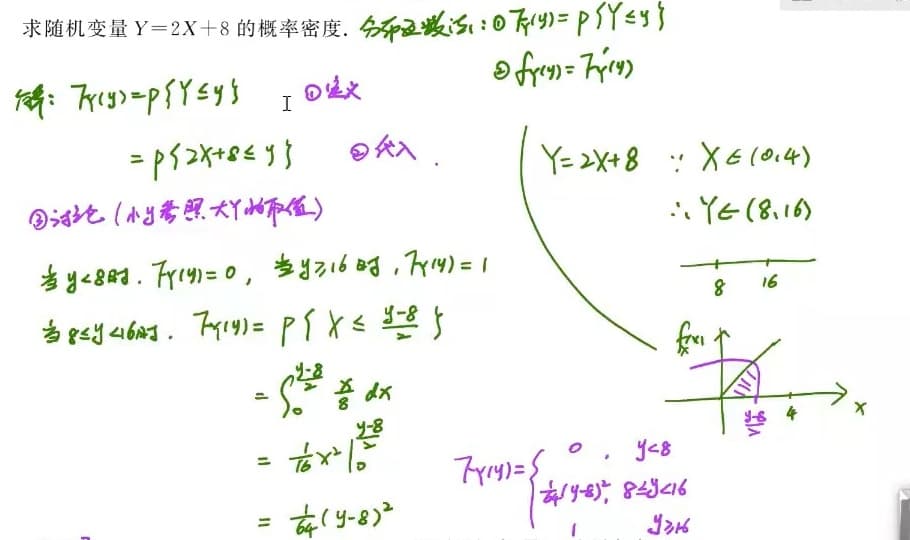 求随机变量 Y=2X+8 的概率密度. 分布函数法: ① F_Y(y)=P{Y≤y}
② f_Y(y)=F_Y'(y)
解: F_Y(y)=P{Y≤y} ①定义
=P{2X+8≤y} ②代入.
③讨论(小y参照大Y的取值)
当y<8时. F_Y(y)=0, 当y≥16时, F_Y(y)=1
当8≤y<16时. F_Y(y)=P{X≤(y-8)/2}
=∫_0^{(y-8)/2} x/8 dx
=1/16 x²|_0^{(y-8)/2}
=1/64(y-8)²
Y=2X+8 ∵ X∈(0,4)
∴ Y∈(8,16)
8 16
f_X(x)
(y-8)/2 4 x
F_Y(y)={ 0, y<8
1/64(y-8)², 8≤y<16
1 y≥16